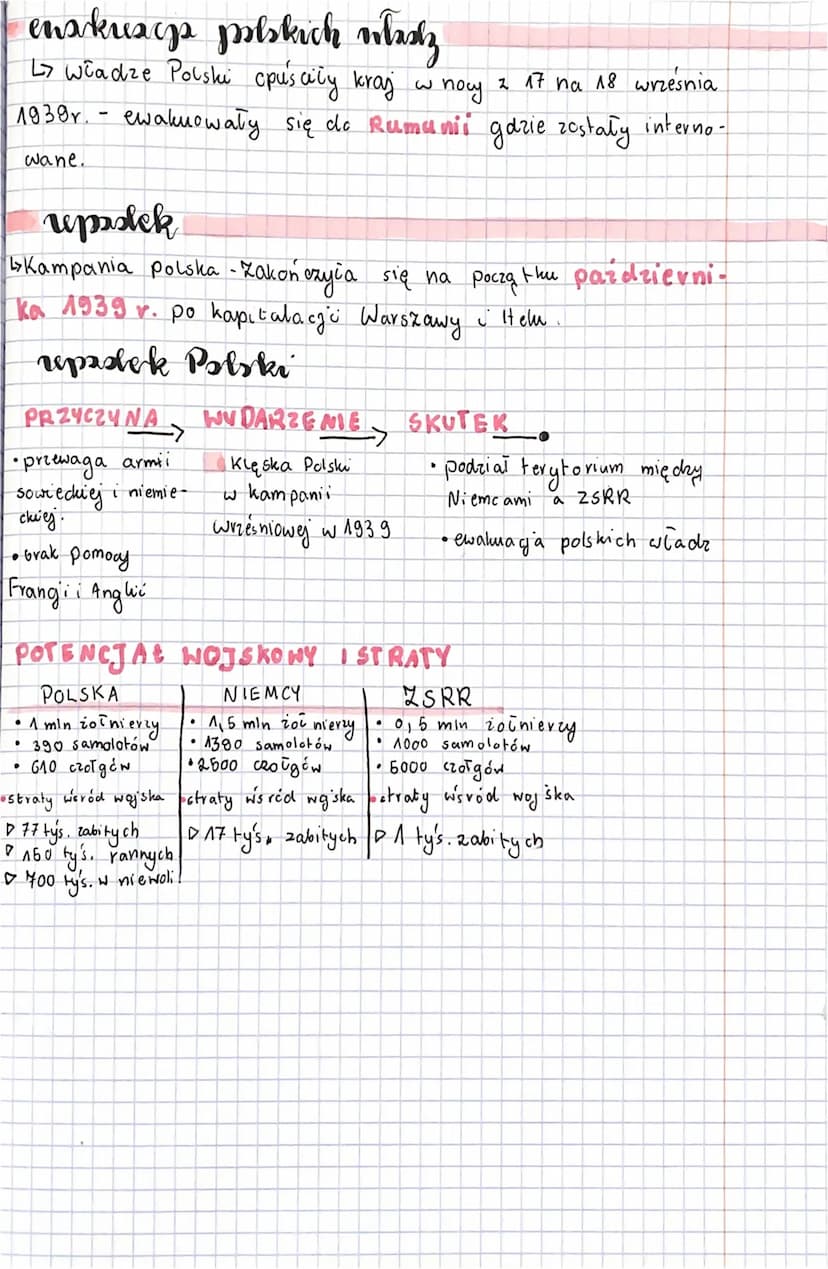 ewakuacja polskich władz
↳ władze Polski opuściły kraj w nocy z 17 na 18 września
1939r. - ewakuowały się do Rumunii gdzie zostały interno-
wane.
upadek
↳ Kampania polska - zakończyła się na początku październi-
ka 1939 r. po kapitulacji Warszawy i Helu.
upadek Polski
PRZYCZYNA → WYDARZENIE → SKUTEK
• przewaga armii
sowieckiej i niemie-
ckiej.
• brak pomocy
Francji i Anglii
Klęska Polski
w kampanii
wrześniowej w 1939
• podział terytorium między
Niemcami a ZSRR
• ewakuacja polskich władz
POTENCJAŁ WOJSKOWY I STRATY
POLSKA
• 1 mln żołnierzy
• 390 samolotów
• 610 czołgów
• straty wśród wojska
▷ 77 tyś. zabitych
▷ 150 tyś. rannych
▷ 700 tyś. w niewoli
NIEMCY
• 1,5 mln żołnierzy
• 1390 samolotów
• 2500 czołgów
• straty wśród wojska
▷ 17 tyś. zabitych
ZSRR
• 0,5 mln żołnierzy
• 1000 samolotów
• 5000 czołgów
• straty wśród wojska
▷ 1 tyś. zabitych